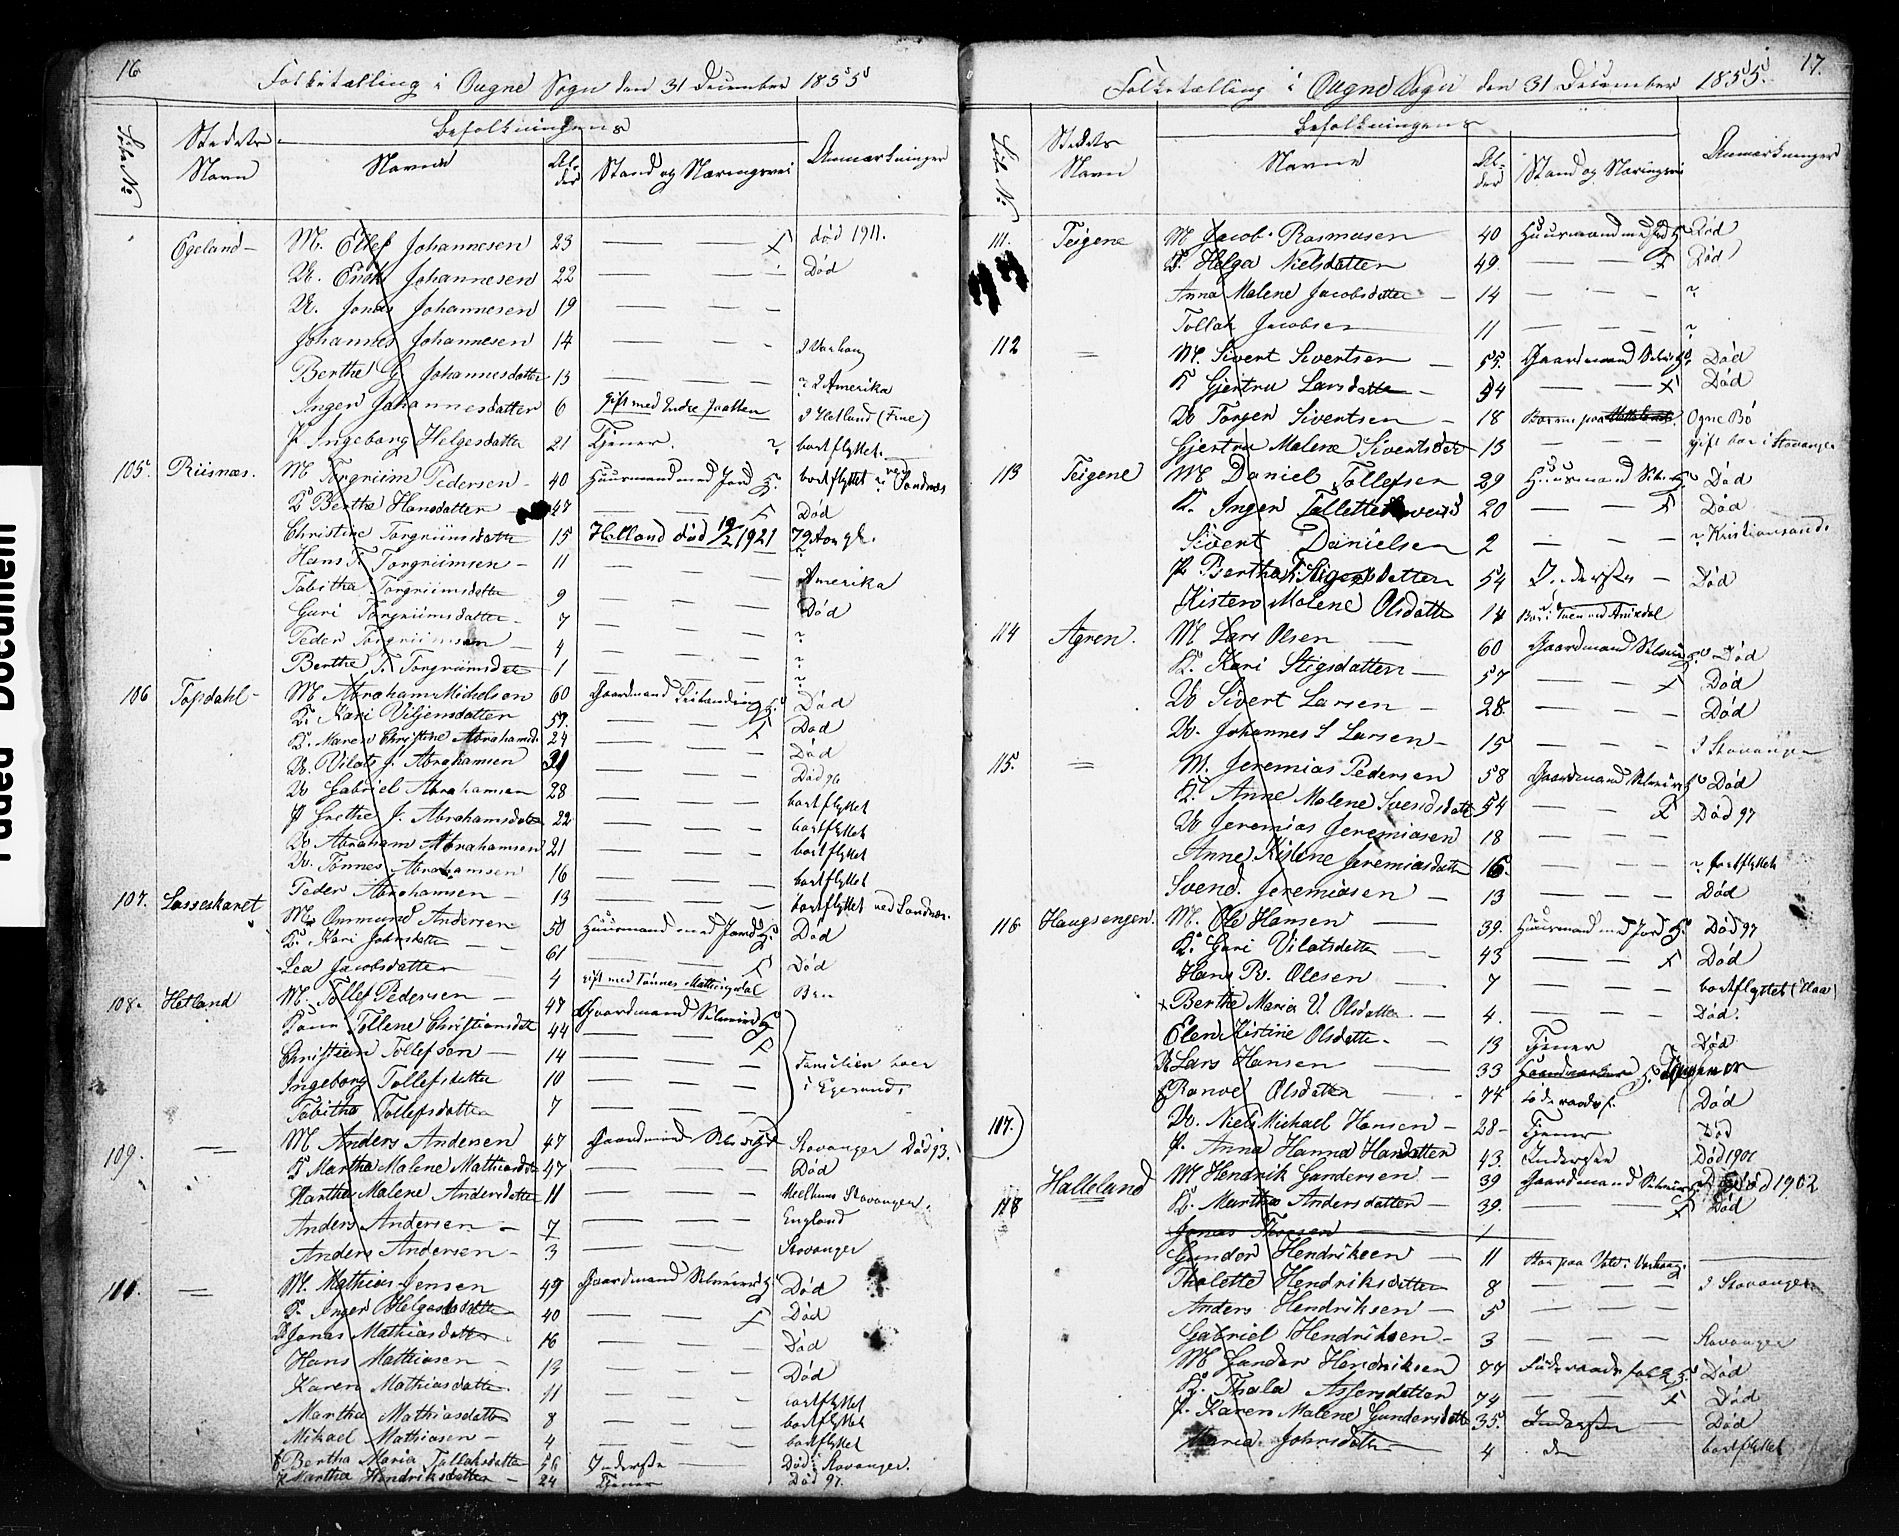 16
Folketælling i Ougne Sogn den 31 December 1855
Løbe No
Stedets Navn
Befolkningens
Navne
Alder
Stand og Næringsvei
Anmærkninger
Egeland – M. Ellef Johannesen 23 — — — død 1911.
U. Johannesen 22 — — — Død
U. Jonas Johannesen 19 — — —
Johannes Johannesen 14 — — — I Varhoug
Berthe G. Johannesdatter 13 — — — ? I Amerika
Inger Johannesdatter 6 gift med Endre I Hetland (Fine)
P Ingeborg Helgesdatter 21 Tjener. ? bortflyttet.
105. Riisnæs. M. Torgriim Pedersen – 40 Huusmand med Jord bortflyttet ? ved Sandnæs
K Berthe Hansdatter 47 — — Død
Christine Torgriimsdatter 15 Helland død 19/2 1921
Hans T. Torgriimsen – 11 — — — ?
Tabitha Torgriimsdatter 9 — — — Amerika
Guri Torgriimsdatter – 7 — — — Død
Peder Torgriimsen – 4 — — — ?
Berthe T. Torgriimsdat 1 — — — ?
106 Topdahl – M. Abraham Mickelsen 60 Gaardmand Død
K. Kari Viljemsdatter 59. — — Død
K. Maren Christine Abrahamsd. 24 — — — Død
U. Vilats J. Abrahamsen 31 — — — Død 96
U Gabriel Abrahamsen 28 — — — bortflyttet
P Grethe J. Abrahamsdatter 22 — — — bortflyttet
U Abraham Abrahamsen 21 — — — bortflyttet
U. Tønnes Abrahamsen 16 — — — bortflyttet
Peder Abrahamsen – 13 — — — bortflyttet ved Sandnæs.
107. Lasseskaret M. Ommund Andersen 50 Huusmand med Jord Død
K. Kari Johnsdatter 61 — — Død
Lea Jacobsdatter 4 gift med Tønnes
108. Hetland M. Tollef Pedersen – 47 Gaardmand Selveier
Kone Tollene Christiansdat 44 — —
Christian Tollefsen — 14 — — —
Ingeborg Tollefsdatter 10 — — —
Tabitha Tollefsdatter 7 — — —
Familien boer i Egersund.
109. — M Anders Andersen 47 Gaardmand Selveier Stavanger Død 93.
K Martha Malene Mathiasdat 47 — — Død
Martha Malene Andersdatter 11 — — — Stavanger.
Anders Andersen – 7 — — — England
Anders Andersen – 3 — — — Stavanger
110. — M. Mathias Jensen 49 Gaardmand Selveier Død
K. Inger Helgesdatter 40 — — Død
Jonas Mathiasdatter 16 — — — Død
Hans Mathiasen – 13 — — — Død
Karen Mathiasdatter. 11 — — — bortflyttet
Martha Mathiasdatter 8 — — — bortflyttet
Mikael Mathiasen – 4 — — — bortflyttet
Bertha Maria Tollaksdatter 56 Inderste — Død i Stavanger.
P Martha Hendriksdatter – 24 Tjener Død 97.
17.
Folketælling i Ougne Sogn den 31 December 1855.
Løbe No
Stedets Navn
Befolkningens
Navne
Alder
Stand og Næringsvei
Anmærkninger
111. Teigene M Jacob Rasmusen 40 Huusmand med Jord Død
K. Helga Nielsdatter 49. — — Død
Anna Malene Jacobsdatter – 14 — — — ?
Tollak Jacobsen 11 — — — ?
112 — M. Sivert Sivertsen — 55. Gaardmand Død
K Gjertru Larsdatter – 54 — — Død
U Torger Sivertsen – 18 Ogne Bø
Gjertru Malene Sivertsdat 13 — — — gift bor i Stavanger
113 Teigene M Daniel Tollefsen 29 Huusmand Død
K. Inger 20 — — Død
Sivert Danielsen 2 — — — ? Kristiansand.
P Bertha Sigersdatter 54 Inderste – Død
Kisten Malene Olsdatter 14
114 Agren. M Lars Olsen — 60 Gaardmand Selveier Død
K. Kari Stigsdatter — 57 — — Død
U Sivert Larsen – 28. — — — Død
U. Johannes S Larsen – 15 — — — I Stavanger
115. — M. Jeremias Pedersen 58 Gaardmand Selveier Død
K. Anne Malene Svendsdatt 54 — — Død 97
U Jeremias Jeremiasen 18 — — —
Anne Kistine Jeremiasdatter 16. — — — ? bortflyttet
Svend. Jeremiasen – 13 — — — Død
116 Haugsengen. M. Ole Hansen — 39. Huusmand med Jord Død 97
K. Guri Vilatsdatter 43 — — Død
Hans R. Olesen – 7 — — — bortflyttet (Haa)
Berthe Maria V. Olsdatter – 4. — — — Død.
Elen Kistine Olsdatter – 13 Tjener Død
U Lars Hansen — 33
Ranve Olsdatter — 74 Død
117. U. Niels Mikael Hansen – 28 – Tjener Død
P. Anna Hanna Hansdatter 43. Inderste Død 1901
118 Halleland M Hendrik Gundersen – 39 Gaardmand Selveier Død 1902
K. Martha Andersdatter – 39. — — Død
Jonas 1
Gunder Hendriksen — 11
Thalette Hendriksdatter 8 — — — I Stavanger
Anders Hendriksen – 5 — — —
Gabriel Hendriksen – 3 — — — Stavanger
M Gunder Hendriksen 77 Føderaadsfolk Død
K. Thala Assersdatter 74 — — Død
P. Karen Malene Gundersdatter 35. Inderste — Død
Maria Johnsdatter — 4 do bortflyttet
Faded Document